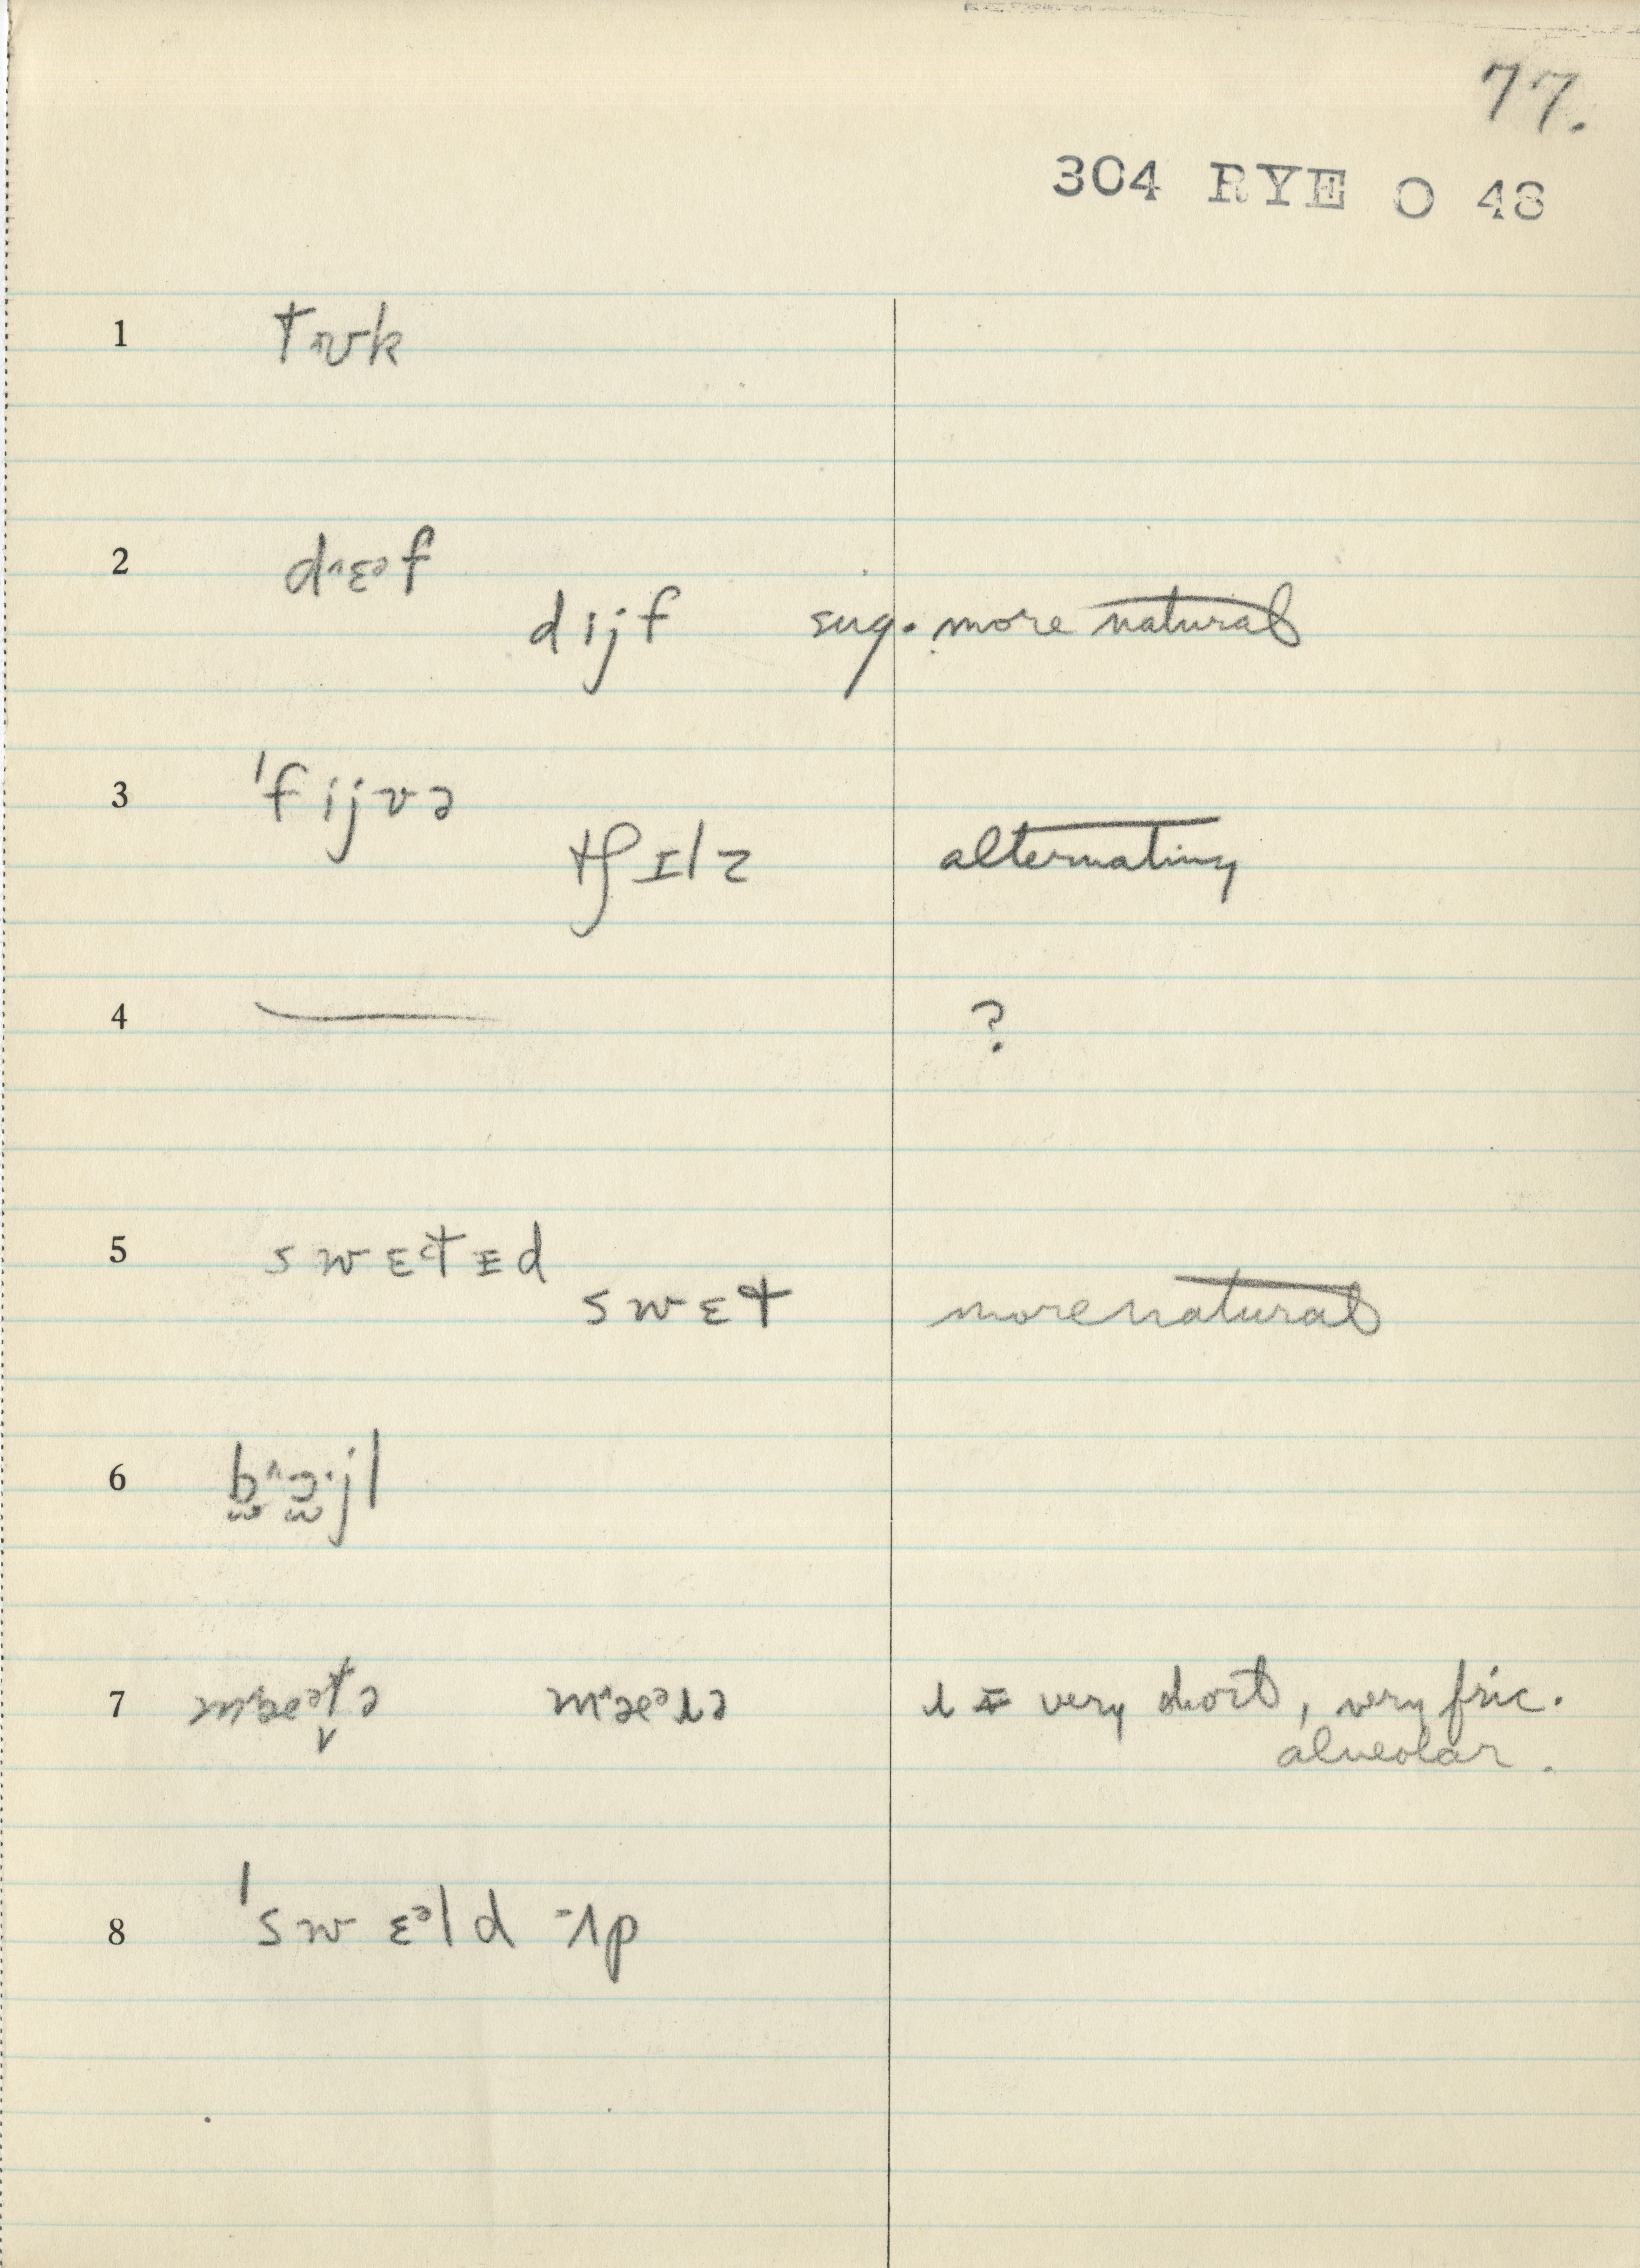 77.
304 RYE O 48
1 tɹʊk
2 d˄ɛᵊf
dijf sug. more natural
3 ˈfijvə
tʃɪlz alternating
4 — ?
5 swɛtɪd
swɛt more natural
6 b̫˄ɔ̫·jl
7 m˄æᵊt̬ə m˄æᵊɹə ɹ = very short, very fric.
alveolar.
8 ˈswɛᵊld -ʌp